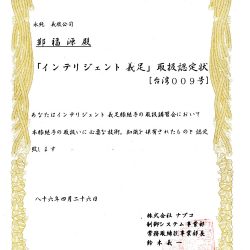 永純 義肢公司
鄭福源殿
「インテリジェント義足」取扱認定状
[台湾009号]
あなたはインテリジェント義足膝継手の取扱講習会において
本膝継手の取扱いに必要な技術、知識を保有されたものと認定
致します
八十六年四月二十六日
株式会社 ナブコ
制御システム事業部
常務取締役事業部長
鈴木義一